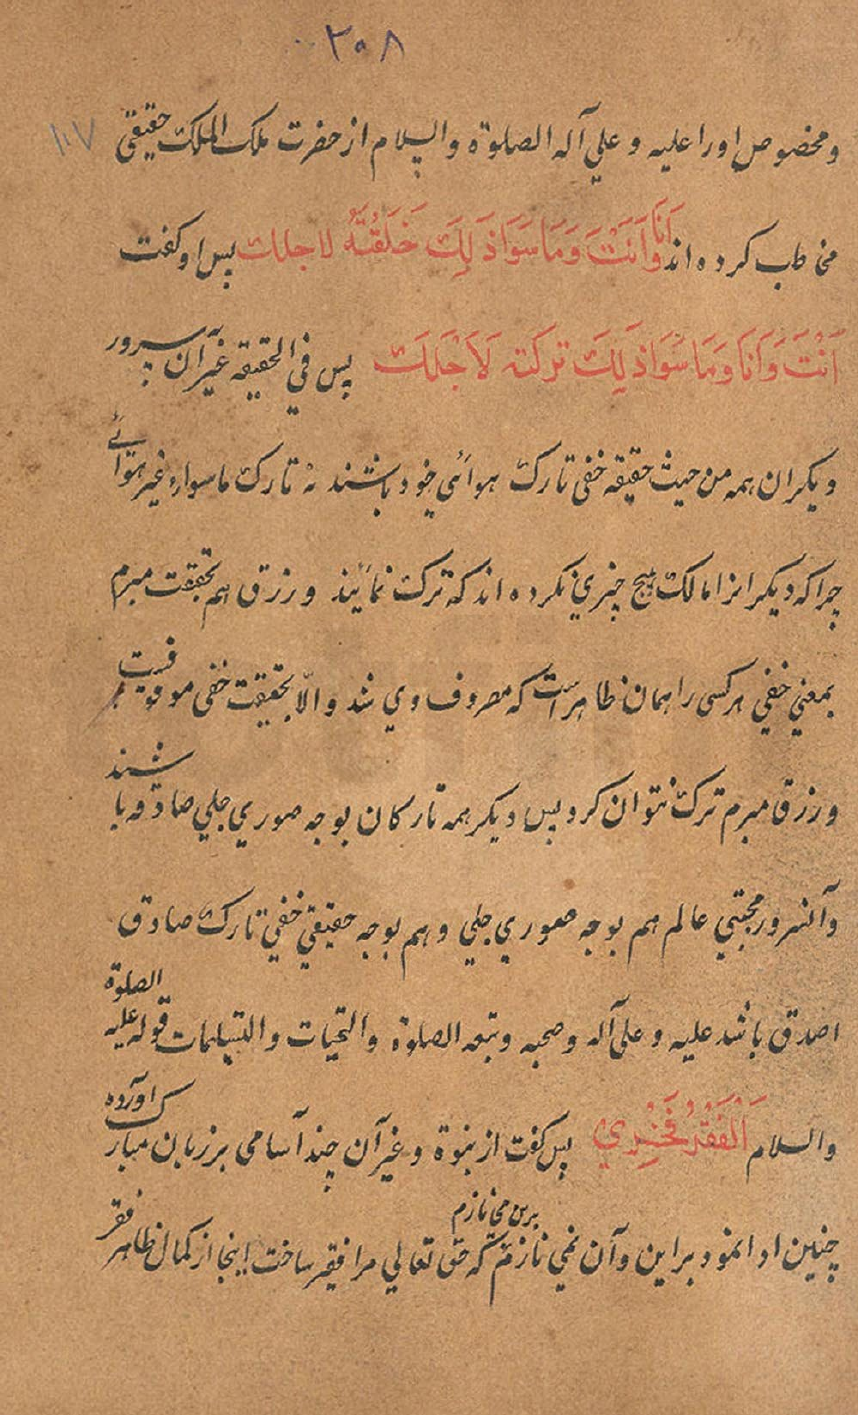 ۳۰۸
۱۰۷
ومخصوص اورا علیه و علی آله الصلوة والسلام از حضرت ملک الملک حقیقی
مخاطب کرده اند اَنَا وَاَنْتَ وَمَا سَوَا ذَلِکَ خَلَقْتُهُ لاجلک پس او کفت
اَنْتَ وَاَنَا وَمَا سَوَا ذَلِکَ ترکته لَاَجْلَکَ پس فی الحقیقه غیر آن سرور
دیکران همه من حیث حقیقه خفی تارک هوائی خود باشند نه تارک ماسواء غیر هوائے
چرا که دیکرانرا مالک هیچ چیزی نکرده اند که ترک نمایند ورزق هم بحقیقت مبرم
بمعنی خفی هر کسی را همان ظاهر است که مصروف وی شد والّا بحقیقت خفی موقوفیست
ورزق مبرم ترک نتوان کرد پس دیکر همه تارکان بوجه صوری جلی صادقه باشند
وآنسرور مجتبی عالم هم بوجه صوری جلی وهم بوجه حقیقی خفی تارک صادق
اصدق باشد علیه و علی آله وصحبه وتبعه الصلوة والتحیات والتسلیمات قوله علیه الصلوة
والسلام اَلْفَقْرُ فَخْرِي پس کفت از نبوة وغیر آن چند آسامی بر زبان مبارک آورده
چنین ادا نمود براین وآن نمی نازم برین می نازم که حق تعالی مرا فقیر ساخت اینجا از کمال ظاهر فقر